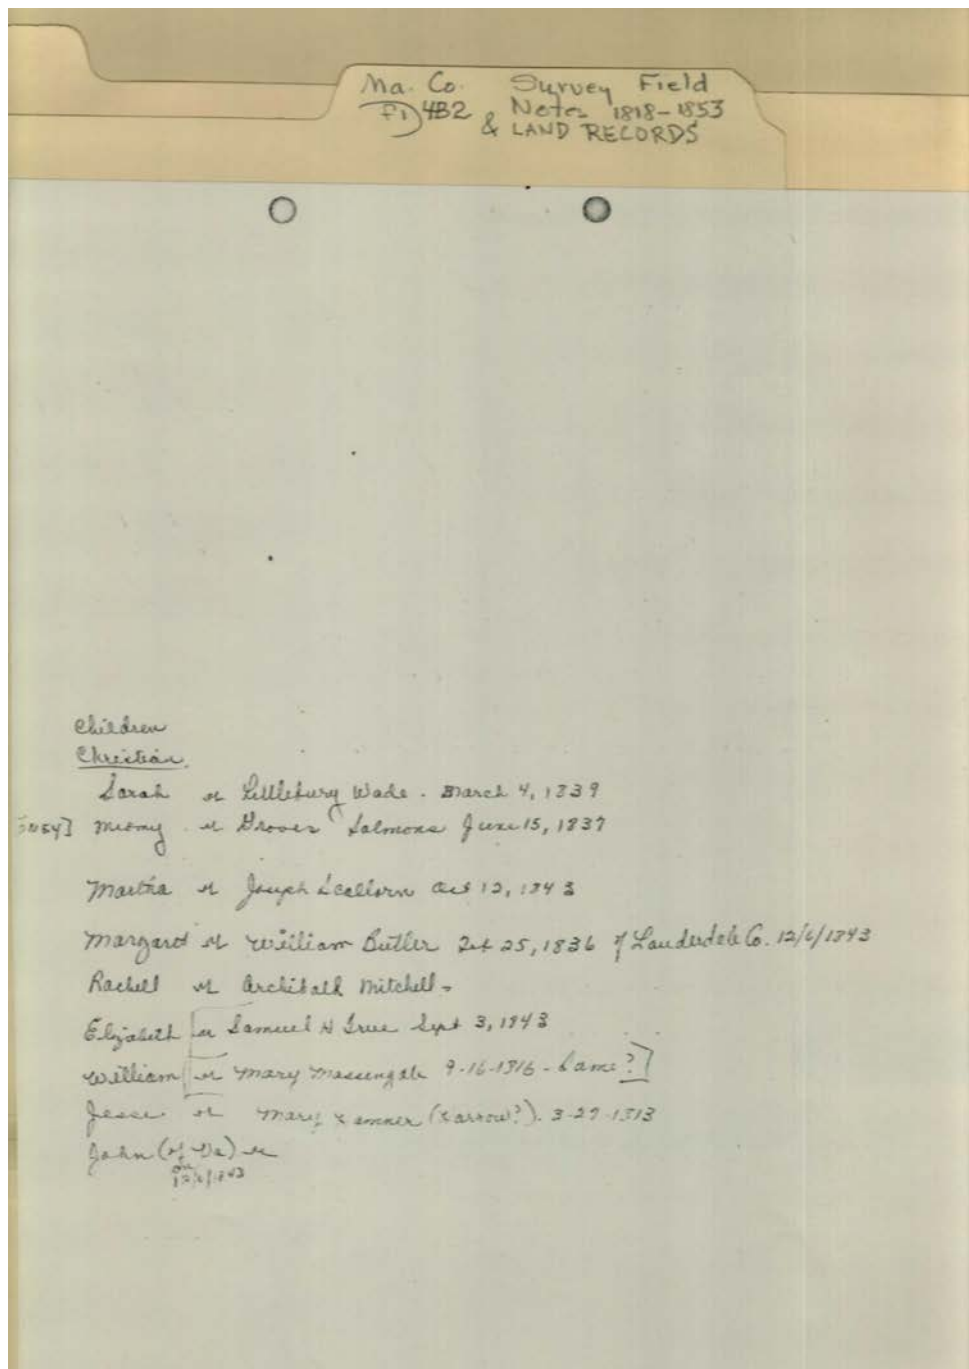 Ma. Co. Survey Field
F1) 4B2 Notes 1818-1853
& LAND RECORDS
Children
Christian
Sarah m Littlebury Wade. March 4, 1839
m Grover Salmons June 15, 1837
Martha m Joseph Oct 12, 1843
Margaret m William Butler 25, 1836 of Lauderdale Co. 12/6/1843
Rachell m Archibald Mitchell-
Elizabeth m Samuel H Sept 3, 1843
William m Mary Massengale 9-16-1816 - Same?]
Jesse m Mary (Yarrow?). 3-27-1813
John (of Va) m
on
12/6/1843